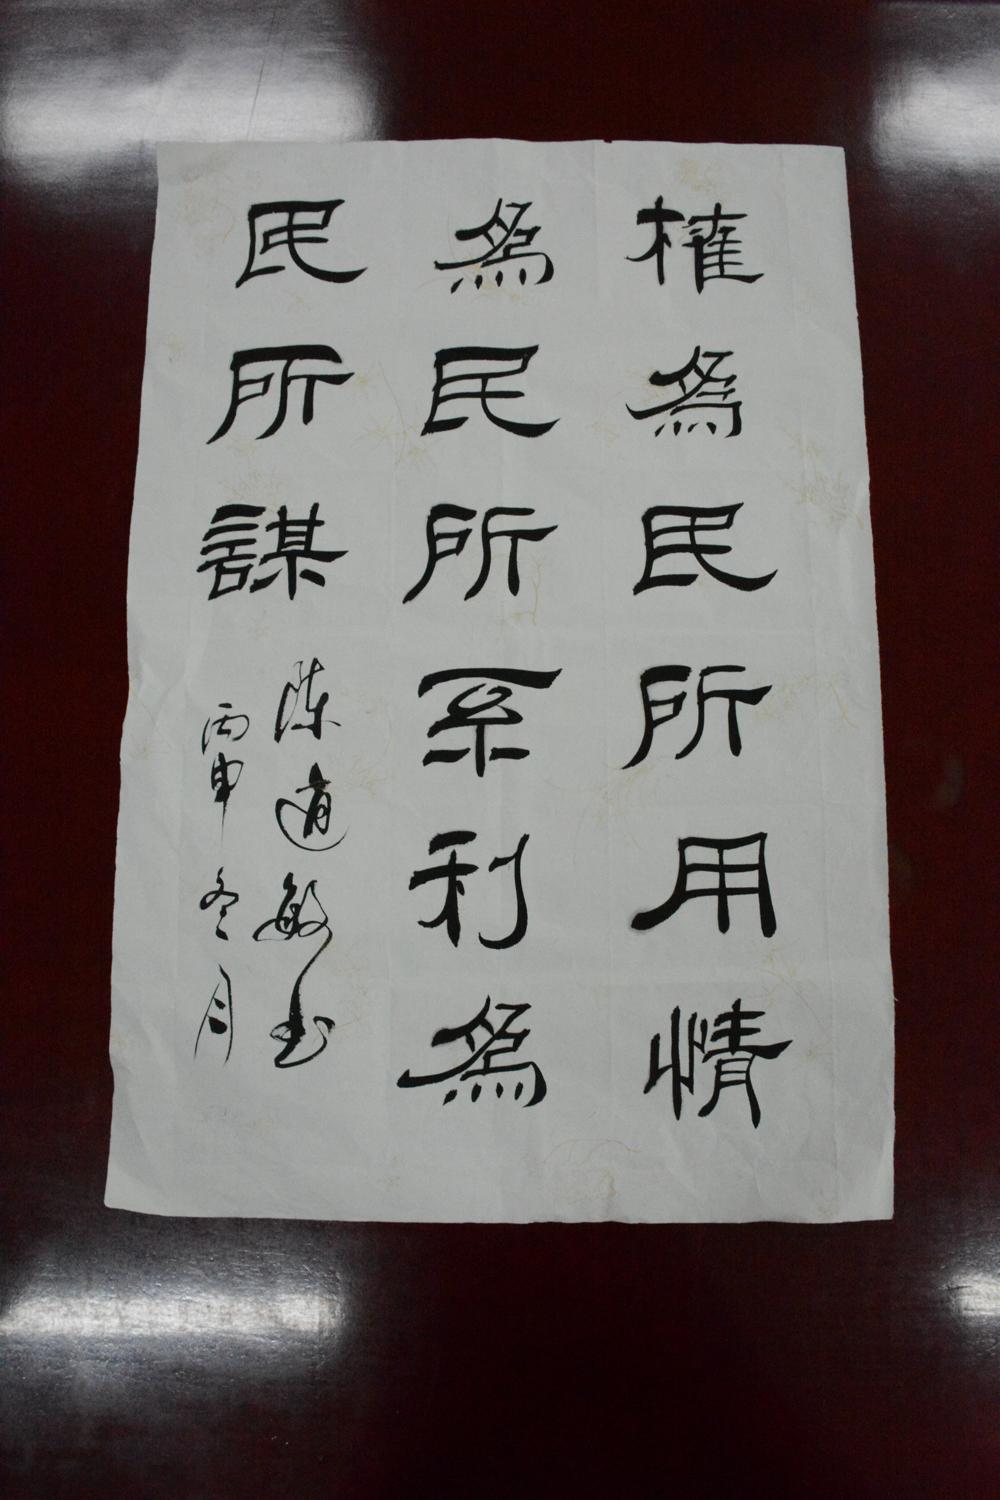 權為民所用情
為民所系利為
民所謀
陈道敏书
丙申冬月